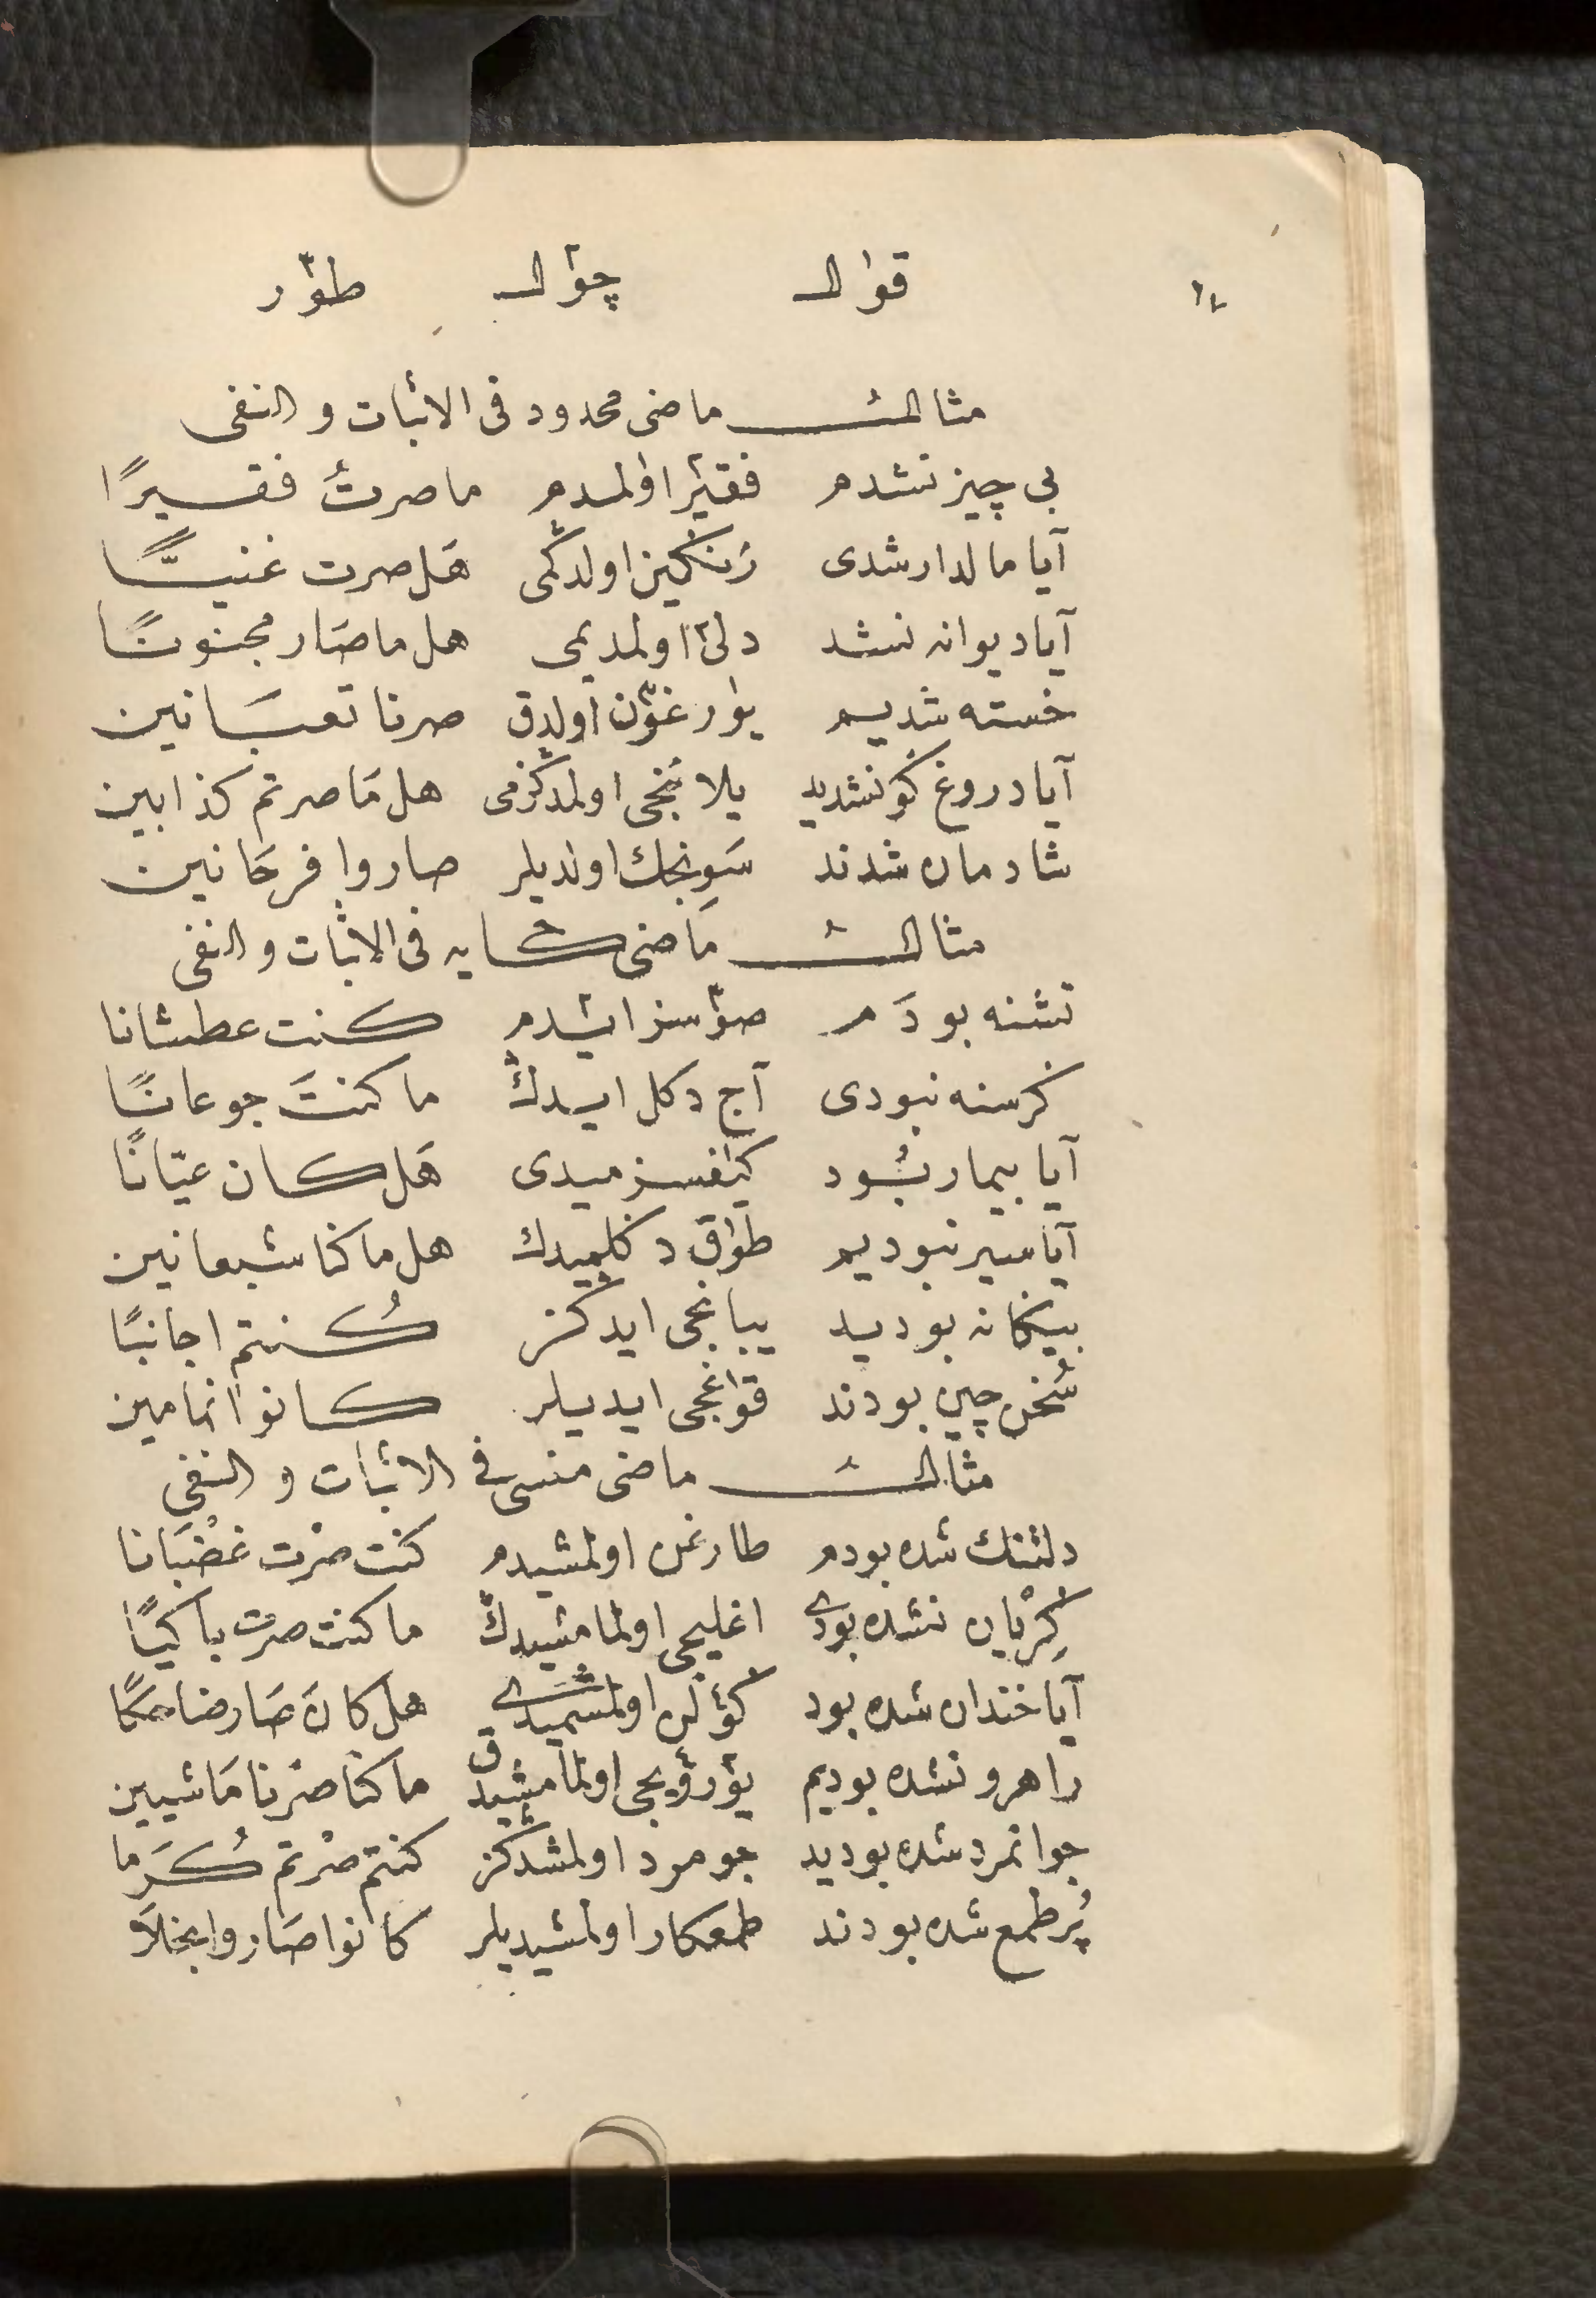 قوال چوال طور
مثالث ماضی محدود فی الاثبات والنفی
بی چیز نشدم فقیر اولمدم ما صرتُ فقیرًا
آیا مالدار شدی زنکین اولدکمی هَل صرت غنیًّا
آیا دیوانه نشد دلی اولمدیمی هل ما صَار مجنونًا
خسته شدیم یورغون اولدق صرنا تعبَانین
آیا دروغ کو نشدید یلانجی اولمدکزمی هل مَا صرتم کذابین
شادمان شدند سَونجك اولدیلر صاروا فرحَانین
مثالث مَاضی حکایه فی الاثبات والنفی
تشنه بودَم صوسز ایدم کنت عطشانا
کرسنه نبودی آج دکل ایدك ما کنتَ جوعانًا
آیا بیمار بُود کیفسزمیدی هَل کان عیّانًا
آیا سیر نبودیم طوق دکلمیدك هل ما کنا شبعانین
بیکانه بودید یبانجی ایدکز کُنتم اجانبًا
سُخن چین بودند قواغجی ایدیلر کانوا نمامین
مثالث ماضی منسی فی الاثبات والنفی
دلتنك شده بودم طارغن اولمشیدم کنت صرْت غضْبَانا
کِرْیان نشده بودی اغلیجی اولمامشیدك ما کنت صرْت باکیًا
آیا خندان شده بود کولن اولمشمیدی هل کانَ صَار ضاحکًا
راهرو نشده بودیم یورویجی اولمامشیدق ما کنا صرْنا مَاشیین
جوانمرد شده بودید جومرد اولمشدکز کنتم صرْتم کُرَما
پُر طمع شده بودند طمعکار اولمشیدیلر کانوا صَاروا بخلَاَ